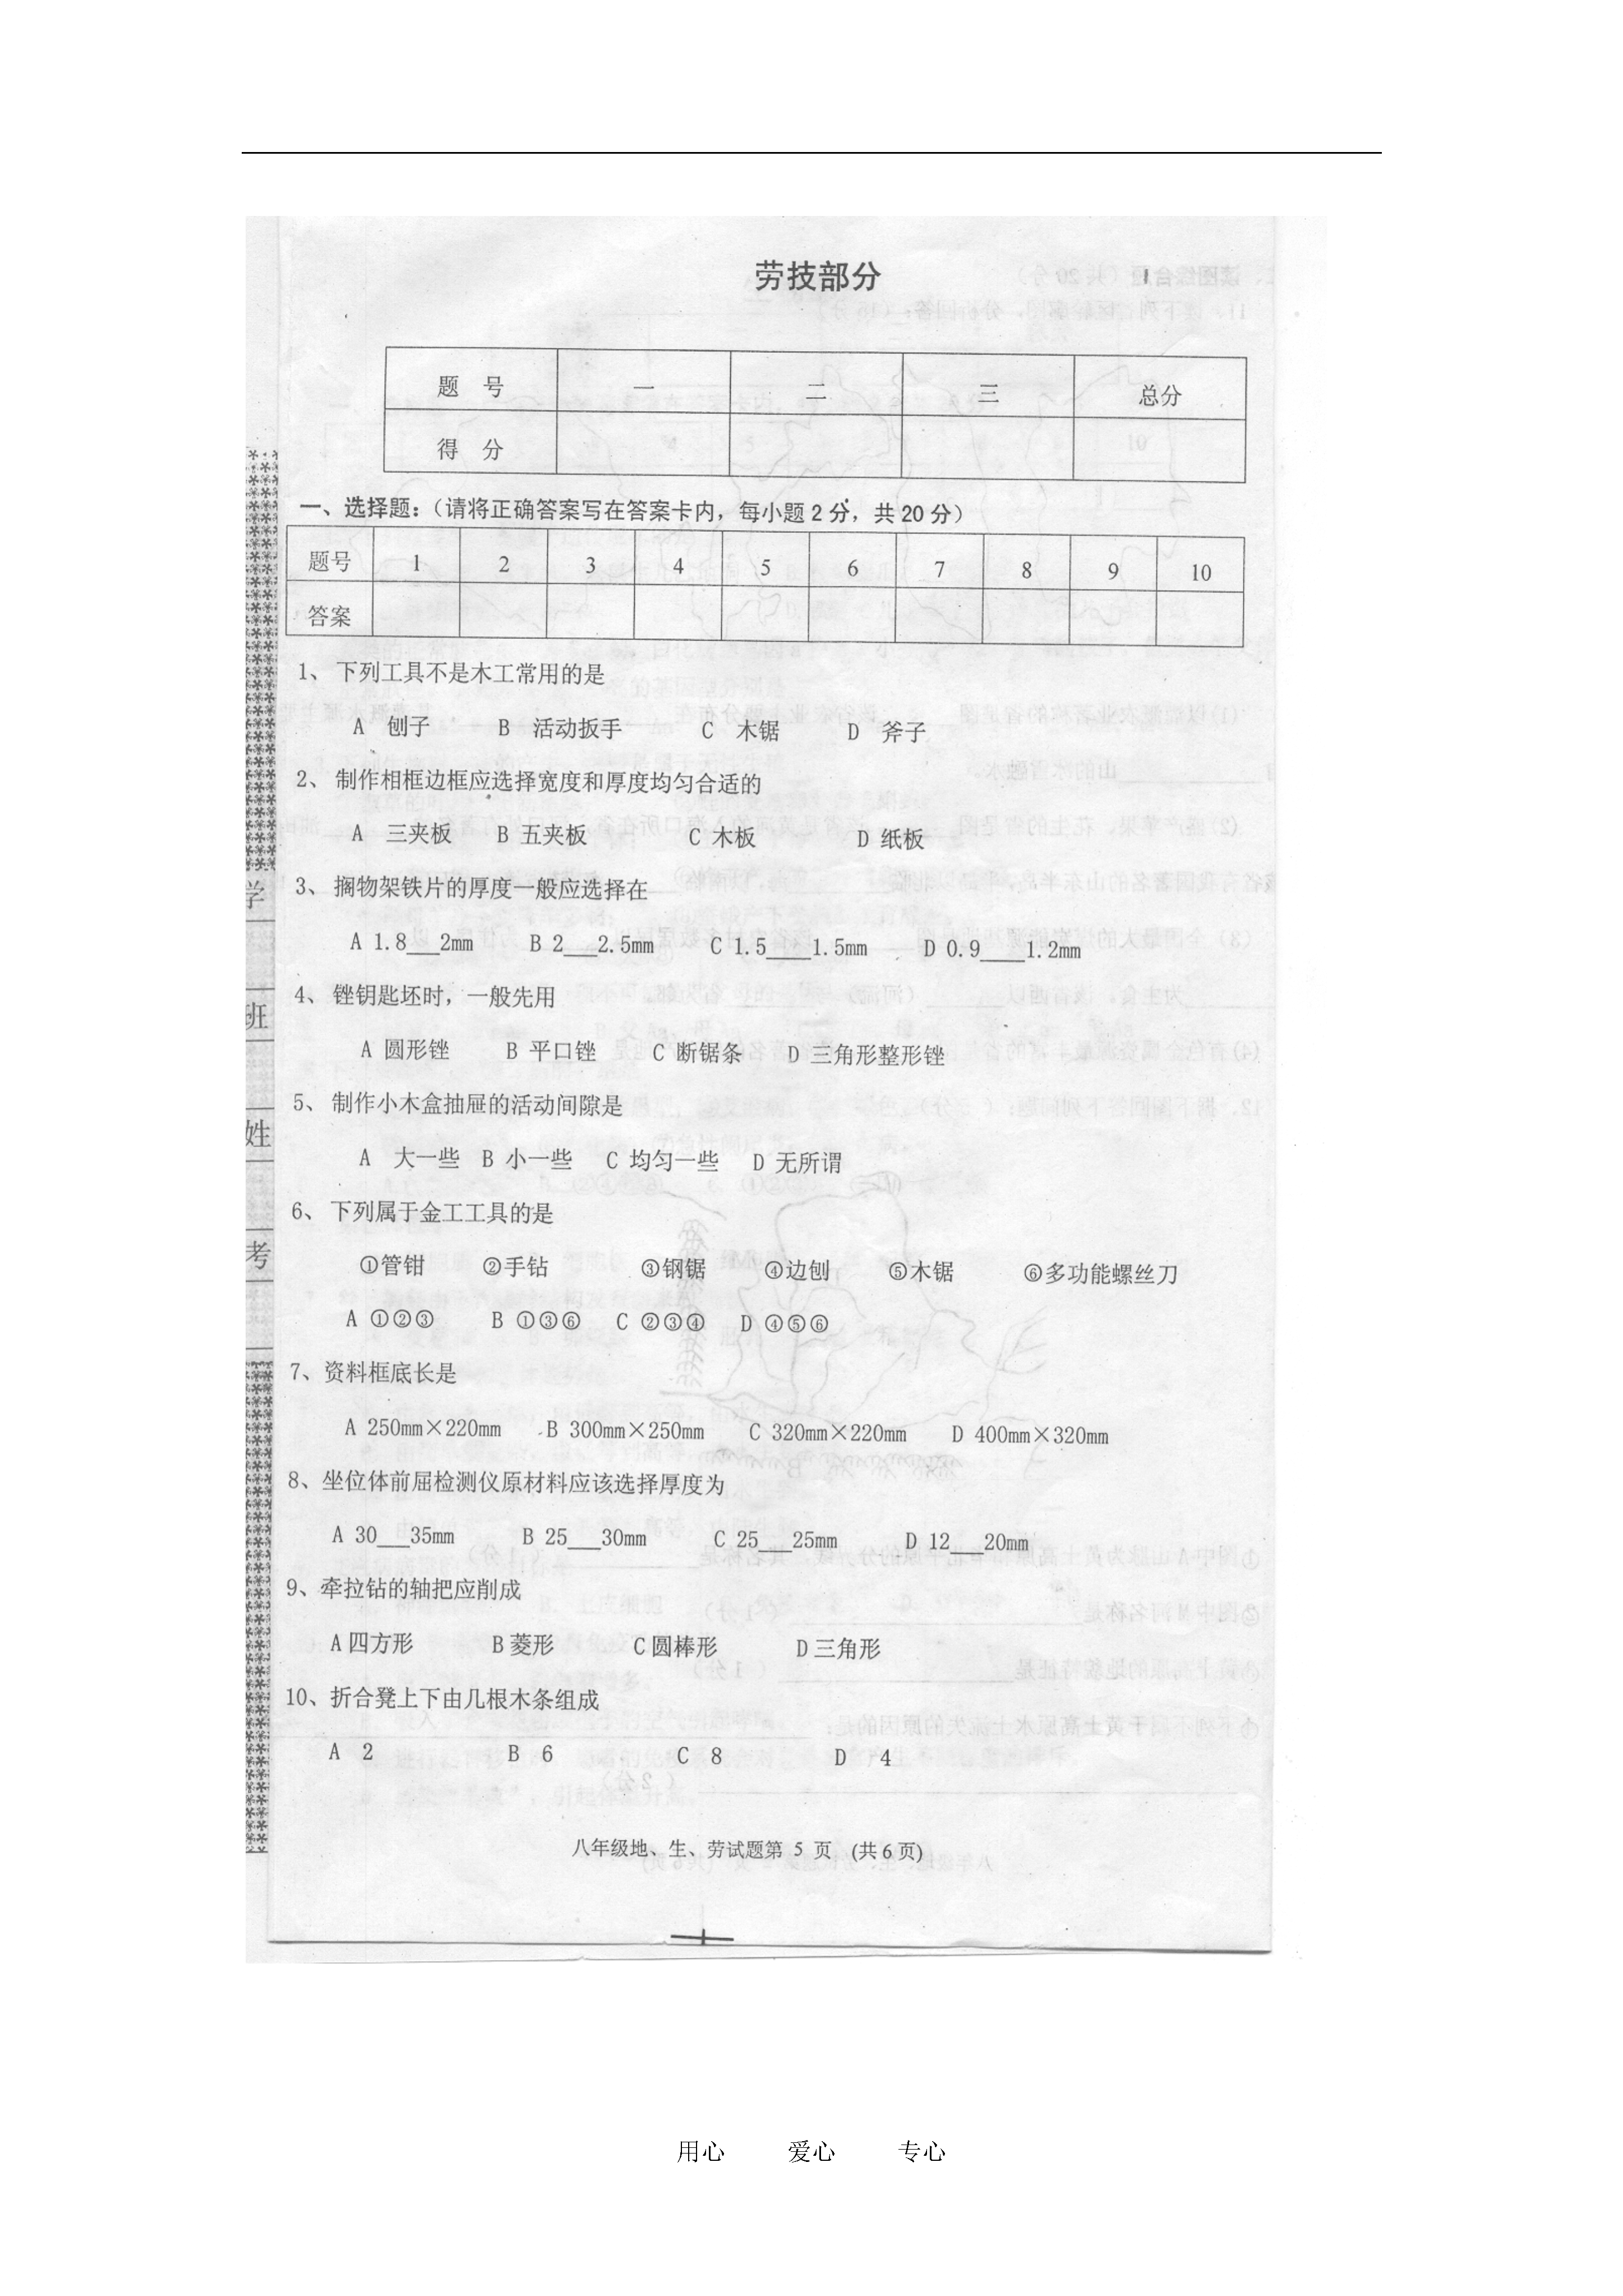 劳技部分
题 号 一 二 三 总分
得 分
一、选择题:(请将正确答案写在答案卡内，每小题2分，共20分)
题号 1 2 3 4 5 6 7 8 9 10
答案
1、下列工具不是木工常用的是
A 刨子 B 活动扳手 C 木锯 D 斧子
2、制作相框边框应选择宽度和厚度均匀合适的
A 三夹板 B 五夹板 C 木板 D 纸板
3、搁物架铁片的厚度一般应选择在
A 1.8___2mm B 2___2.5mm C 1.5____1.5mm D 0.9____1.2mm
4、锉钥匙坯时，一般先用
A 圆形锉 B 平口锉 C 断锯条 D 三角形整形锉
5、制作小木盒抽屉的活动间隙是
A 大一些 B 小一些 C 均匀一些 D 无所谓
6、下列属于金工工具的是
①管钳 ②手钻 ③钢锯 ④边刨 ⑤木锯 ⑥多功能螺丝刀
A ①②③ B ①③⑥ C ②③④ D ④⑤⑥
7、资料框底长是
A 250mm×220mm B 300mm×250mm C 320mm×220mm D 400mm×320mm
8、坐位体前屈检测仪原材料应该选择厚度为
A 30___35mm B 25___30mm C 25___25mm D 12___20mm
9、牵拉钻的轴把应削成
A四方形 B菱形 C圆棒形 D三角形
10、折合凳上下由几根木条组成
A 2 B 6 C 8 D 4
八年级地、生、劳试题第 5 页 (共6页)
学
班
姓
考
用心 爱心 专心